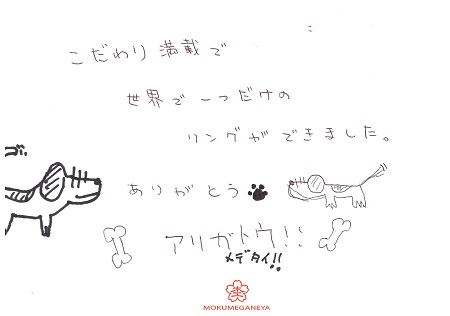 こだわり満載で
世界で一つだけの
リングができました。
ありがとう
アリガトウ!!
メデタイ!!
MOKUMEGANEYA